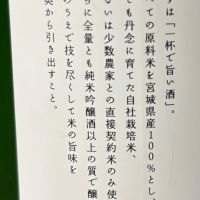 ずは「一杯で旨い酒」。
べての原料米を宮城県産100％とし、
でも丹念に育てた自社栽培米、
るいは少数農家との直接契約米のみ使
らに全量とも純米吟醸酒以上の質で醸
のうえで技を尽くして米の旨味を
から引き出すこと。